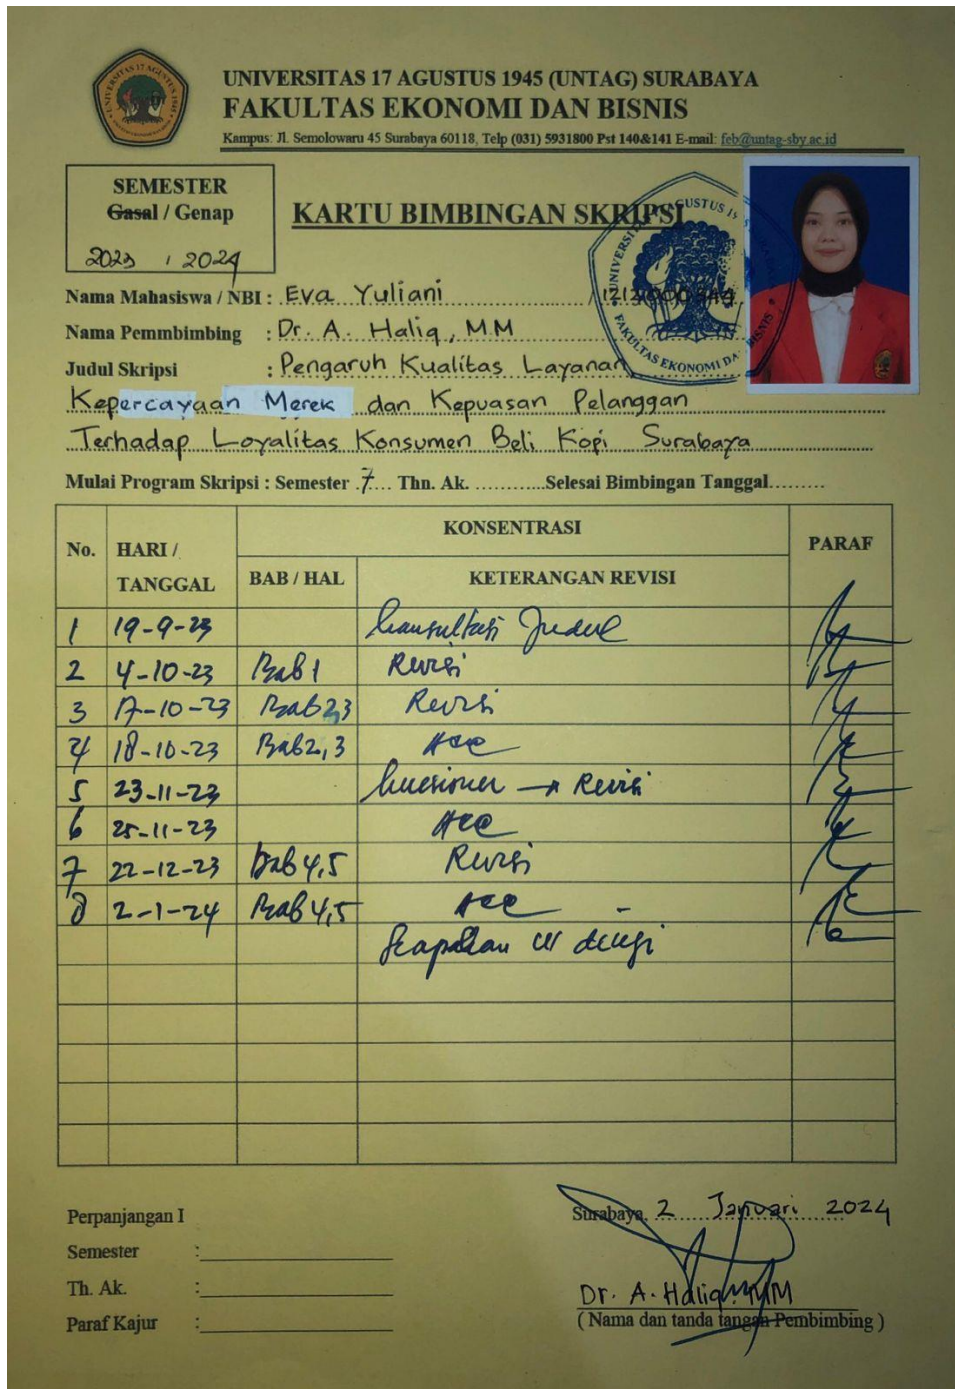 UNIVERSITAS 17 AGUSTUS 1945 (UNTAG) SURABAYA
FAKULTAS EKONOMI DAN BISNIS
Kampus: Jl. Semolowaru 45 Surabaya 60118, Telp (031) 5931800 Pst 140&141 E-mail: feb@untag-sby.ac.id
SEMESTER
Gasal / Genap
2023 / 2024
KARTU BIMBINGAN SKRIPSI
Nama Mahasiswa / NBI : Eva Yuliani /
Nama Pemmbimbing : Dr. A. Haliq, MM
Judul Skripsi : Pengaruh Kualitas Layanan,
Kepercayaan Merek dan Kepuasan Pelanggan
Terhadap Loyalitas Konsumen Beli Kopi Surabaya
Mulai Program Skripsi : Semester 7 Thn. Ak. ............Selesai Bimbingan Tanggal.........
KONSENTRASI
No. HARI / TANGGAL BAB / HAL KETERANGAN REVISI PARAF
1 19-9-23 Konsultasi Judul
2 4-10-23 Bab 1 Revisi
3 17-10-23 Bab 2,3 Revisi
4 18-10-23 Bab 2,3 Acc
5 23-11-23 Kuesioner → Revisi
6 25-11-23 Acc
7 22-12-23 Bab 4,5 Revisi
8 2-1-24 Bab 4,5 Acc
Perpanjangan I
Semester :
Th. Ak. :
Paraf Kajur :
Surabaya, 2 Januari 2024
Dr. A. Haliq, MM
( Nama dan tanda tangan Pembimbing )